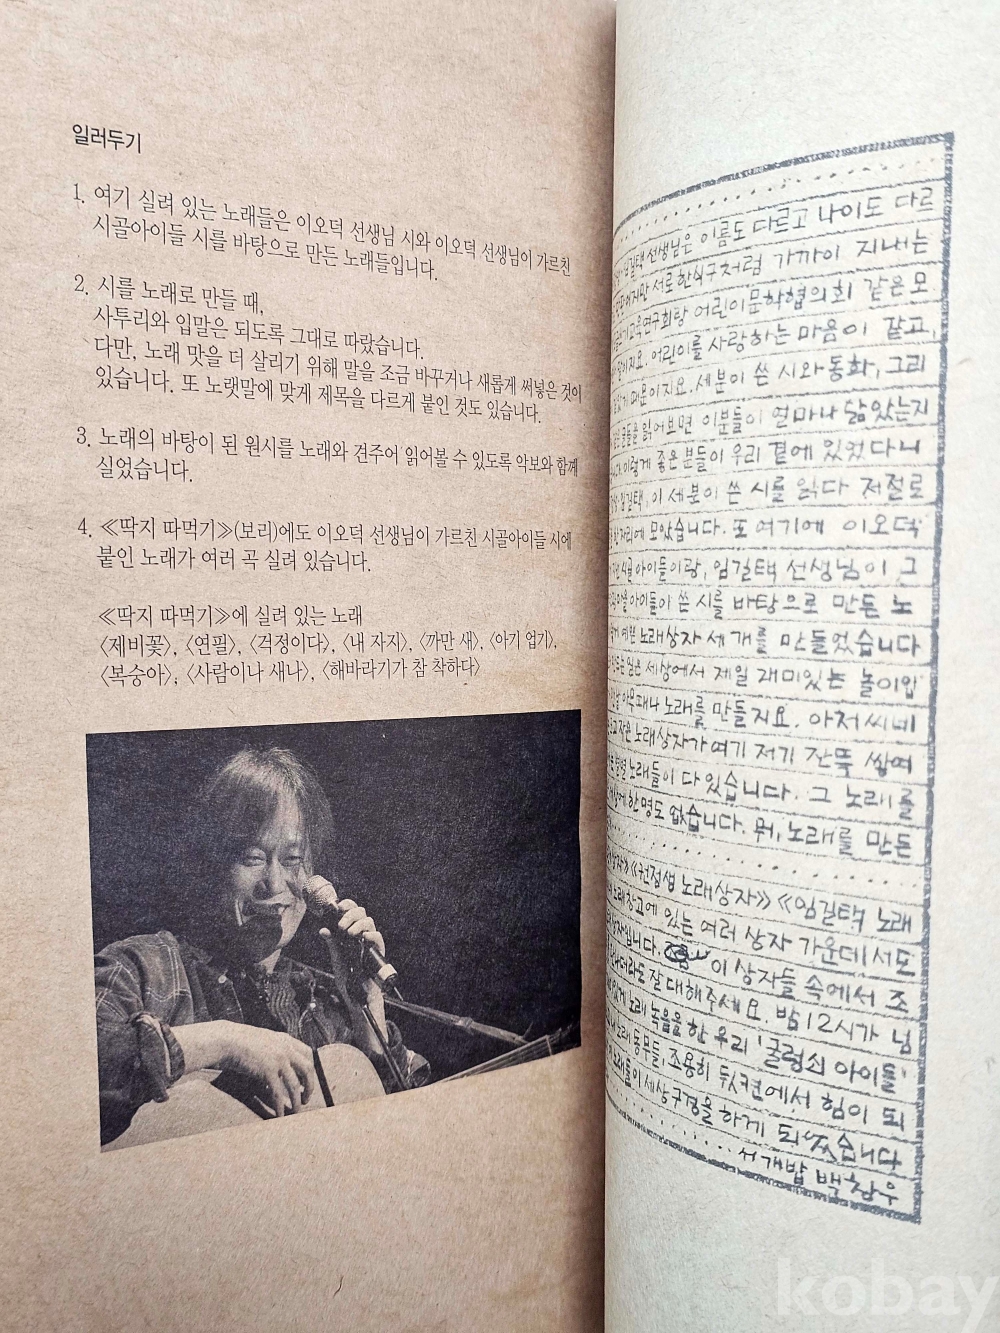 일러두기
1. 여기 실려 있는 노래들은 이오덕 선생님 시와 이오덕 선생님이 가르친
시골아이들 시를 바탕으로 만든 노래들입니다.
2. 시를 노래로 만들 때,
사투리와 입말은 되도록 그대로 따랐습니다.
다만, 노래 맛을 더 살리기 위해 말을 조금 바꾸거나 새롭게 써넣은 것이
있습니다. 또 노랫말에 맞게 제목을 다르게 붙인 것도 있습니다.
3. 노래의 바탕이 된 원시를 노래와 견주어 읽어볼 수 있도록 악보와 함께
실었습니다.
4. ≪딱지 따먹기≫(보리)에도 이오덕 선생님이 가르친 시골아이들 시에
붙인 노래가 여러 곡 실려 있습니다.
≪딱지 따먹기≫에 실려 있는 노래
〈제비꽃〉, 〈연필〉, 〈걱정이다〉, 〈내 자지〉, 〈까만 새〉, 〈아기 업기〉,
〈복숭아〉, 〈사람이나 새나〉, 〈해바라기가 참 착하다〉
임길택 선생님은 이름도 다르고 나이도 다르
서로 한식구처럼 가까이 지내는
어린이문학협의회 같은 모
어린이를 사랑하는 마음이 같고,
때문이지요. 세분이 쓴 시와 동화, 그리
글들을 읽어보면 이분들이 얼마나 닮았는지
이렇게 좋은 분들이 우리 곁에 있었다니
임길택, 이 세분이 쓴 시를 읽다 저절로
모았습니다. 또 여기에 이오덕
아이들이랑, 임길택 선생님이 그
아이들이 쓴 시를 바탕으로 만든 노
예쁜 노래상자 세 개를 만들었습니다
일은 세상에서 제일 재미있는 놀이입
노래를 만들지요. 아저씨네
작은 노래상자가 여기 저기 잔뜩 쌓여
별별 노래들이 다 있습니다. 그 노래를
한명도 없습니다. 뭐, 노래를 만든
≪권정생 노래상자≫ ≪임길택 노래
노래창고에 있는 여러 상자 가운데서도
이 상자들 속에서 조
잘 대해주세요. 밤 12시가 넘
노래 녹음을 한 우리 '굴렁쇠 아이들'
노래 동무들, 조용히 뒷켠에서 힘이 되
세상구경을 하게 되었습니다
서개밥 백창우
kobay